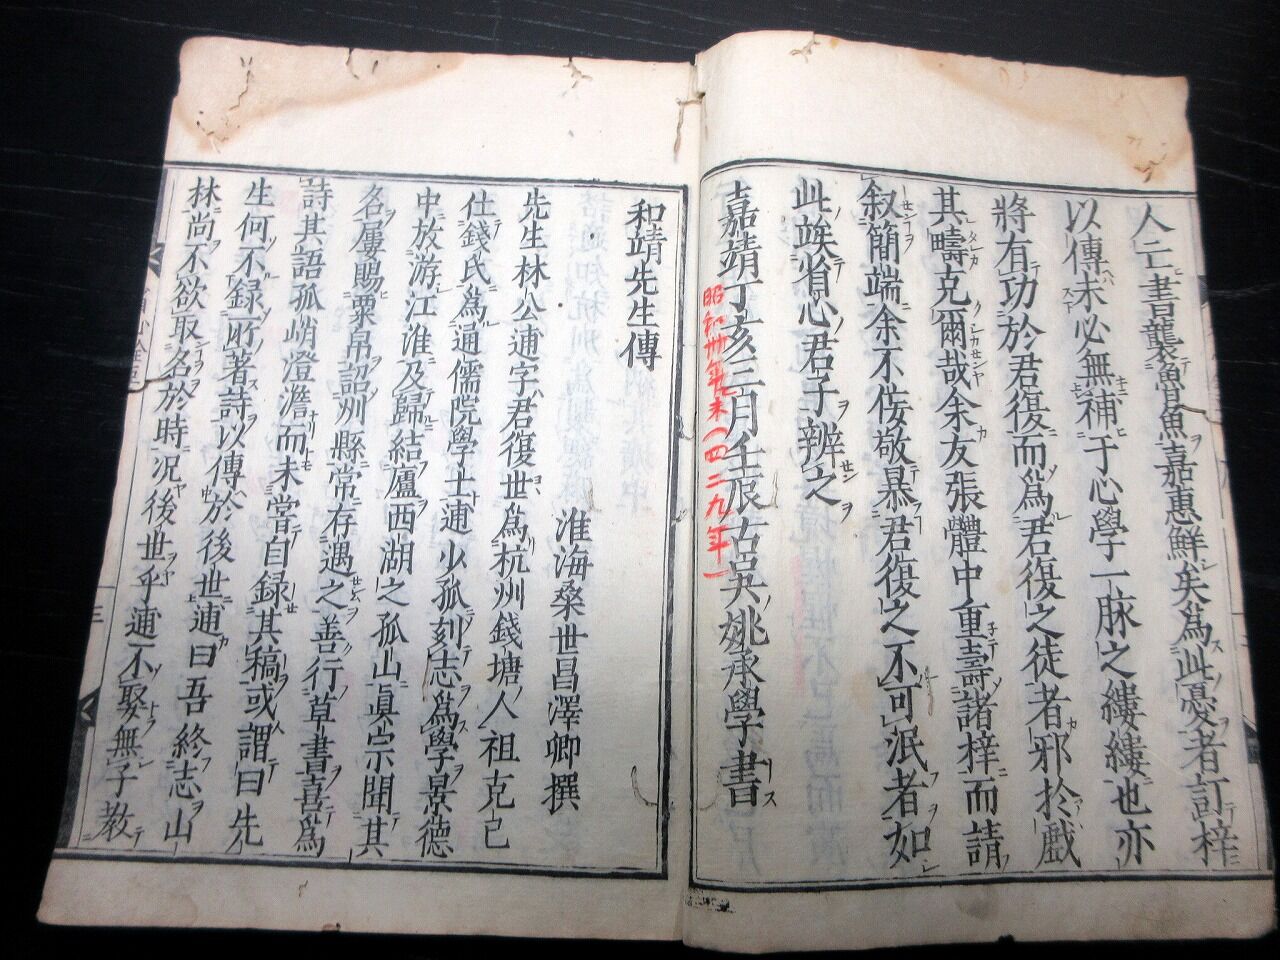 人二書襲魯魚嘉惠鮮矣為此憂者訂梓
以傳未必無補于心學一脉之縷縷也亦
將有功於君復而為君復之徒者邪於戲
其疇克爾哉余友張體中重壽諸梓而請
叙簡端余不佞敬暴君復之不可泯者如
此竢省心君子辨之
嘉靖丁亥三月壬辰古吳姚承學書
昭和卅年末(四二九年)
和靖先生傳
淮海桑世昌澤卿撰
先生林公逋字君復世為杭州錢塘人祖克己
仕錢氏為通儒院學士逋少孤刻志為學景德
中放游江淮及歸結廬西湖之孤山眞宗聞其
名屢賜粟帛詔州縣常存遇之善行草書喜為
詩其語孤峭澄澹而未嘗自録其稿或謂曰先
生何不録所著詩以傳於後世逋曰吾終志山
林尚不欲取名於時况後世乎逋不娶無子教